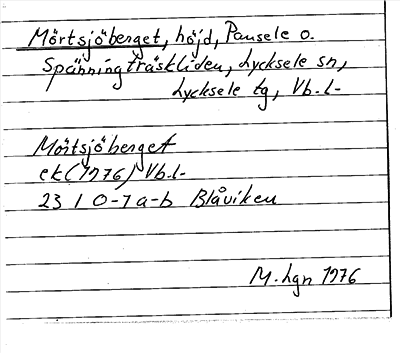 Mörtsjöberget, höjd, Pausele o.
Spänningträskliden, Lycksele sn,
Lycksele tg, Vb.l-
Mörtsjöberget
ek(1976) Vb.l-
23 I 0-1 a-b Blåviken
M. Lgn 1976